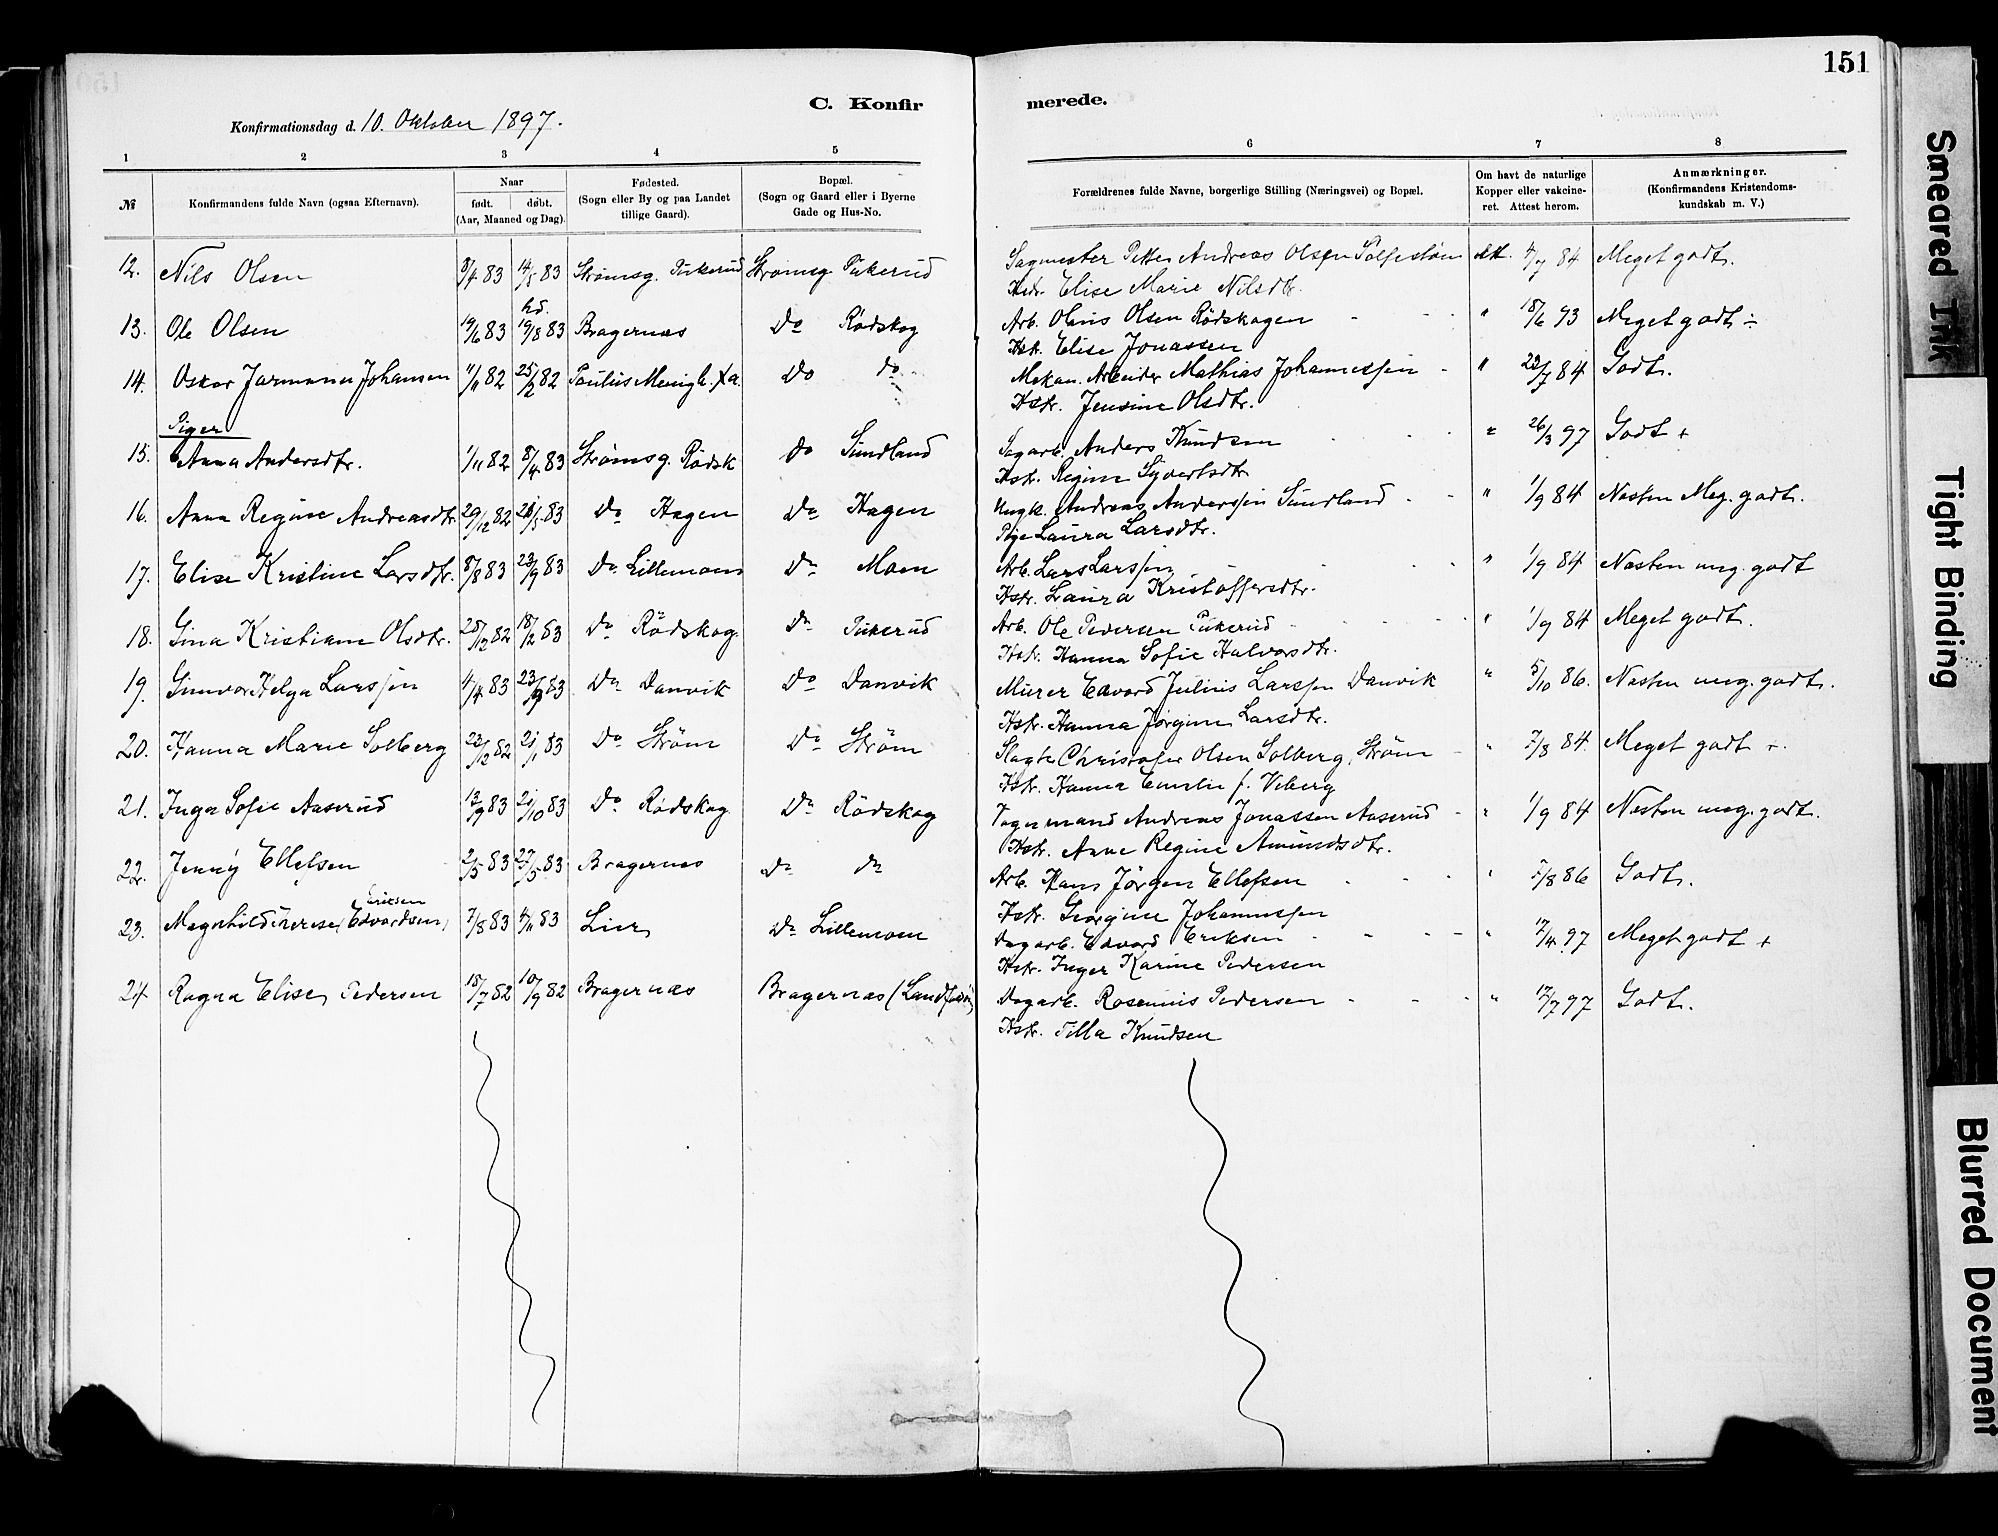 151
C. Konfirmerede.
Konfirmationsdag d. 10. Oktober 1897.
1 2 3 4 5 6 7 8
№
Konfirmandens fulde Navn (ogsaa Efternavn).
Naar
født. døbt.
(Aar, Maaned og Dag).
Fødested.
(Sogn eller By og paa Landet
tillige Gaard).
Bopæl.
(Sogn og Gaard eller i Byerne
Gade og Hus-No.
Forældrenes fulde Navne, borgerlige Stilling (Næringsvei) og Bopæl.
Om havt de naturlige
Kopper eller vakcine-
ret. Attest herom.
Anmærkninger.
(Konfirmandens Kristendoms-
kundskab m. V.)
12. Nils Olsen 3/4 83 14/5 83 Strømsg. Pukerud Strømsg Pukerud Sagmester Petter Andreas Olsen att. 4/7 84 Meget godt.
hd. Elise Marie Nilsdtr.
13. Ole Olsen 19/6 83 19/8 83 Bragernæs Do Rödskog Arb. Olaus Olsen Rödskogen " 18/6 93 Meget godt ÷
Hstr. Elise Jonassen
14. Oskar Johansen 11/11 82 25/12 82 Paulus Menigh. Do do Mekan. Arbeider Mathias Johannessen " 22/7 84 Godt.
Hstr. Jensine Olsdtr.
Piger
15. Anna Andersdtr. 1/11 82 8/4 83 Strømsg. Rödsk do Sundland Sagarb. Anders Knudsen " 26/3 97 Godt +
Hstr. Regine Syvertsdtr
16. Anna Regine Andreasdtr. 29/12 82 83 Do Hagen Do Hagen Ungk. Andreas Anderssen Sundland " 1/9 84 Næsten Meg. godt.
Pige Laura Larsdtr.
17. Elise Kristine Larsdtr. 8/8 83 23/9 83 Do Lillemoen Do Moen Arb. Lars Larssen " 1/9 84 Næsten meg. godt
Hstr. Laura Kristoffersdtr.
18. Gina Kristiane Olsdtr. 25/12 82 18/2 83 Do Rödskog. Do Pukerud Arb. Ole Pedersen Pukerud " 1/9 84 Meget godt.
Hstr. Hanna Sofie Halvorsdtr.
19. Gunvor Helga Larssen 4/4 83 23/9 83 Do Danvik Do Danvik Murer Edvard Julius Larssen Danvik " 5/10 86. Næsten meg. godt.
Hstr. Hanna Jørgine Larsdtr.
20. Hanna Marie Solberg 23/12 82 21/1 83 Do Strøm Do Strøm Slagter Christofer Olsen Solberg, Strøm " 7/8 84. Meget godt +.
Hstr. Hanna Emilie f. Viberg
21. Inga Sofie Aaserud 13/9 83 21/10 83 Do Rödskog Do Rödskog Andreas Jonassen Aaserud " 1/9 84 Næsten meg. godt.
Hstr. Anne Regine Amundsdtr.
22. Jenny Ellefsen 2/5 83 27/5 83 Bragernæs do do Arb. Hans Jörgen Ellefsen " 7/8 86 Godt.
Hstr. Georgine Johannessen
Eriksen
23. Magnhild (Edvardsen) 7/8 83 4/11 83 Lier Do Lillemoen Dagarb. Edvard Eriksen " 17/4 97 Meget godt +
Hstr. Inger Karine Pedersen
24 Ragna Elise Pedersen 18/7 82 10/9 82 Bragernæs Bragernæs Dagarb. Rosenius Pedersen " 17/7 97 Godt.
Hstr. Tilla Knudsen
Smeared Ink
Tight Binding
Blurred Document